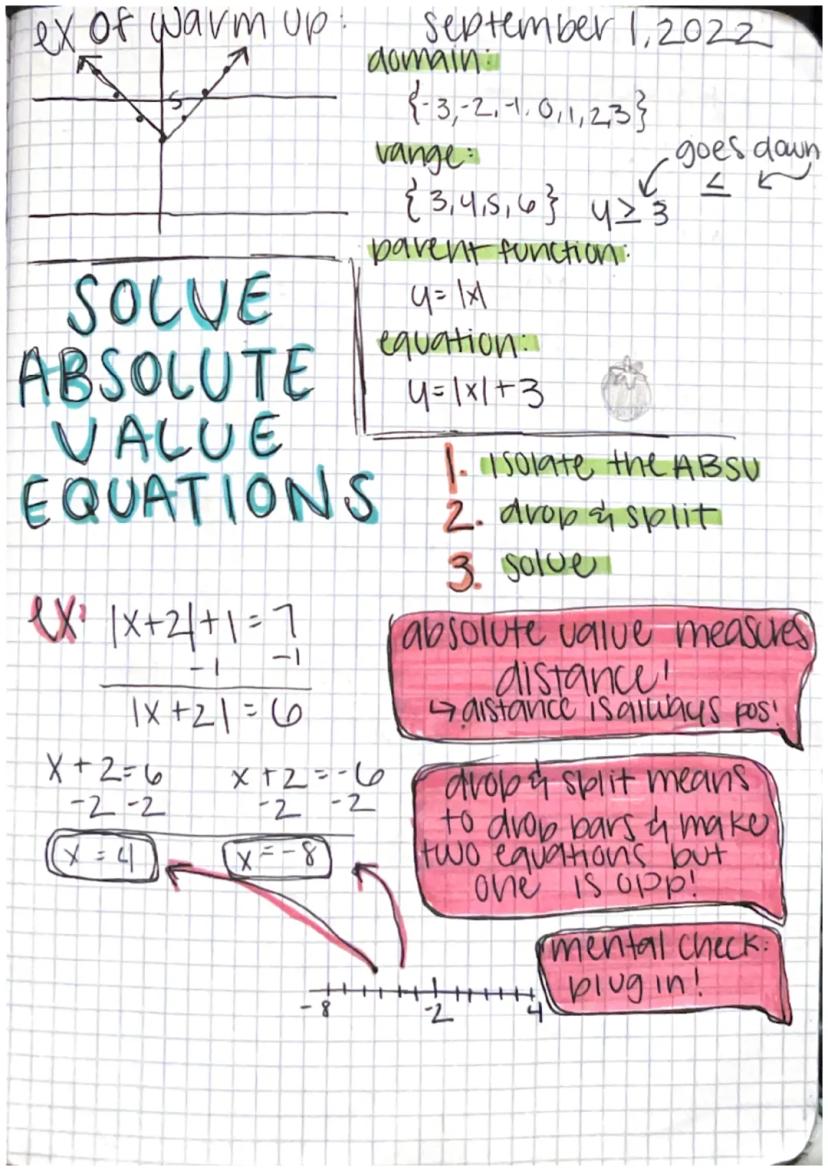 ex of warm up:
5
september 1, 2022
domain:
{-3,-2,-1,0,1,2,3}
range:
goes down
{3,4,5,6} y≥3
≤
parent function:
y=|x|
equation:
y=|x|+3
SOLVE
ABSOLUTE
VALUE
EQUATIONS
1. isolate the ABSV
2. drop & split
3. solve
ex: |x+2|+1=7
-1 -1
|x+2|=6
x+2=6 x+2=-6
-2 -2 -2 -2
x=4 x=-8
absolute value measures
distance!
↳ distance is always pos!
drop & split means
to drop bars & make
two equations but
one is opp!
mental check:
plug in!
-8 -2 4